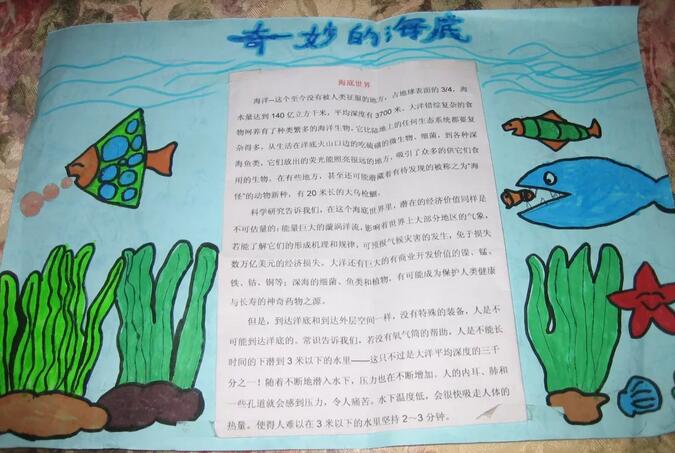 奇妙的海底
海底世界
海洋--这个至今没有被人类征服的地方，占地球表面的 3/4，海
水量达到 140 亿立方千米，平均深度有 3700 米，大洋错综复杂的食
物网养育了种类繁多的海洋生物，它比陆地上的任何生态系统都要复
杂得多，从生活在洋底火山口边的吃硫磺的微生物、细菌，到各种深
海鱼类，它们放出的荧光能照亮很远的地方，吸引了众多的供它们食
用的生物，在有些地方，甚至还可能潜藏着有待发现的被称之为“海
怪”的动物新种，有 20 米长的大乌枪鲗。
科学研究告诉我们，在这个海底世界里，潜在的经济价值同样是
不可估量的：能量巨大的漩涡洋流，影响着世界上大部分地区的气象，
若能了解它们的形成机理和规律，可预报气候灾害的发生，免于损失
数万亿美元的经济损失。大洋还有巨大的有商业开发价值的镍、锰、
铁、钴、铜等；深海的细菌、鱼类和植物，有可能成为保护人类健康
与长寿的神奇药物之源。
但是，到达洋底和到达外层空间一样，没有特殊的装备，人是不
可能到达洋底的。常识告诉我们，若没有氧气筒的帮助，人是不能长
时间的下潜到 3 米以下的水里——这只不过是大洋平均深度的三千
分之一！随着不断地潜入水下，压力也在不断增加。人的内耳、肺和
一些孔道就会感到压力，令人痛苦。水下温度低，会很快吸走人体的
热量。使得人难以在 3 米以下的水里坚持 2～3 分钟。